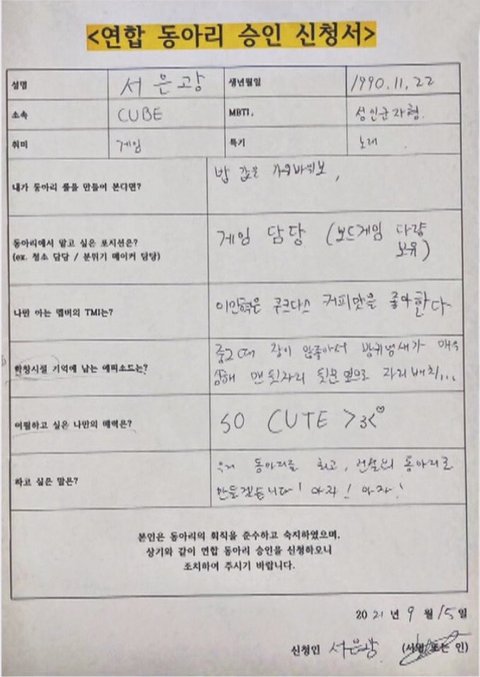 <연합 동아리 승인 신청서>
성명 서은광 생년월일 1990.11.22
소속 CUBE MBTI. 성인군자형.
취미 게임 특기 노래.
내가 동아리 룰을 만들어 본다면? 밥 값은 가위바위보,
동아리에서 맡고 싶은 포지션은? 게임 담당 (보드게임 다량
(ex. 청소 담당 / 분위기 메이커 담당) 보유)
나만 아는 멤버의 TMI는? 이민혁은 쿠크다스 커피맛을 좋아한다
학창시절 기억에 남는 에피소드는? 중2때 장이 안좋아서 방귀냄새가 매우
심해 맨 뒷자리 뒷문 옆으로 자리배치...
어필하고 싶은 나만의 매력은? SO CUTE >3<♡
하고 싶은 말은? 우리 동아리를 최고, 전설의 동아리로
만들겠습니다! 아자! 아자!
본인은 동아리의 회칙을 준수하고 숙지하였으며,
상기와 같이 연합 동아리 승인을 신청하오니
조치하여 주시기 바랍니다.
2021년 9월 15일
신청인 서은광 (서명 또는 인)